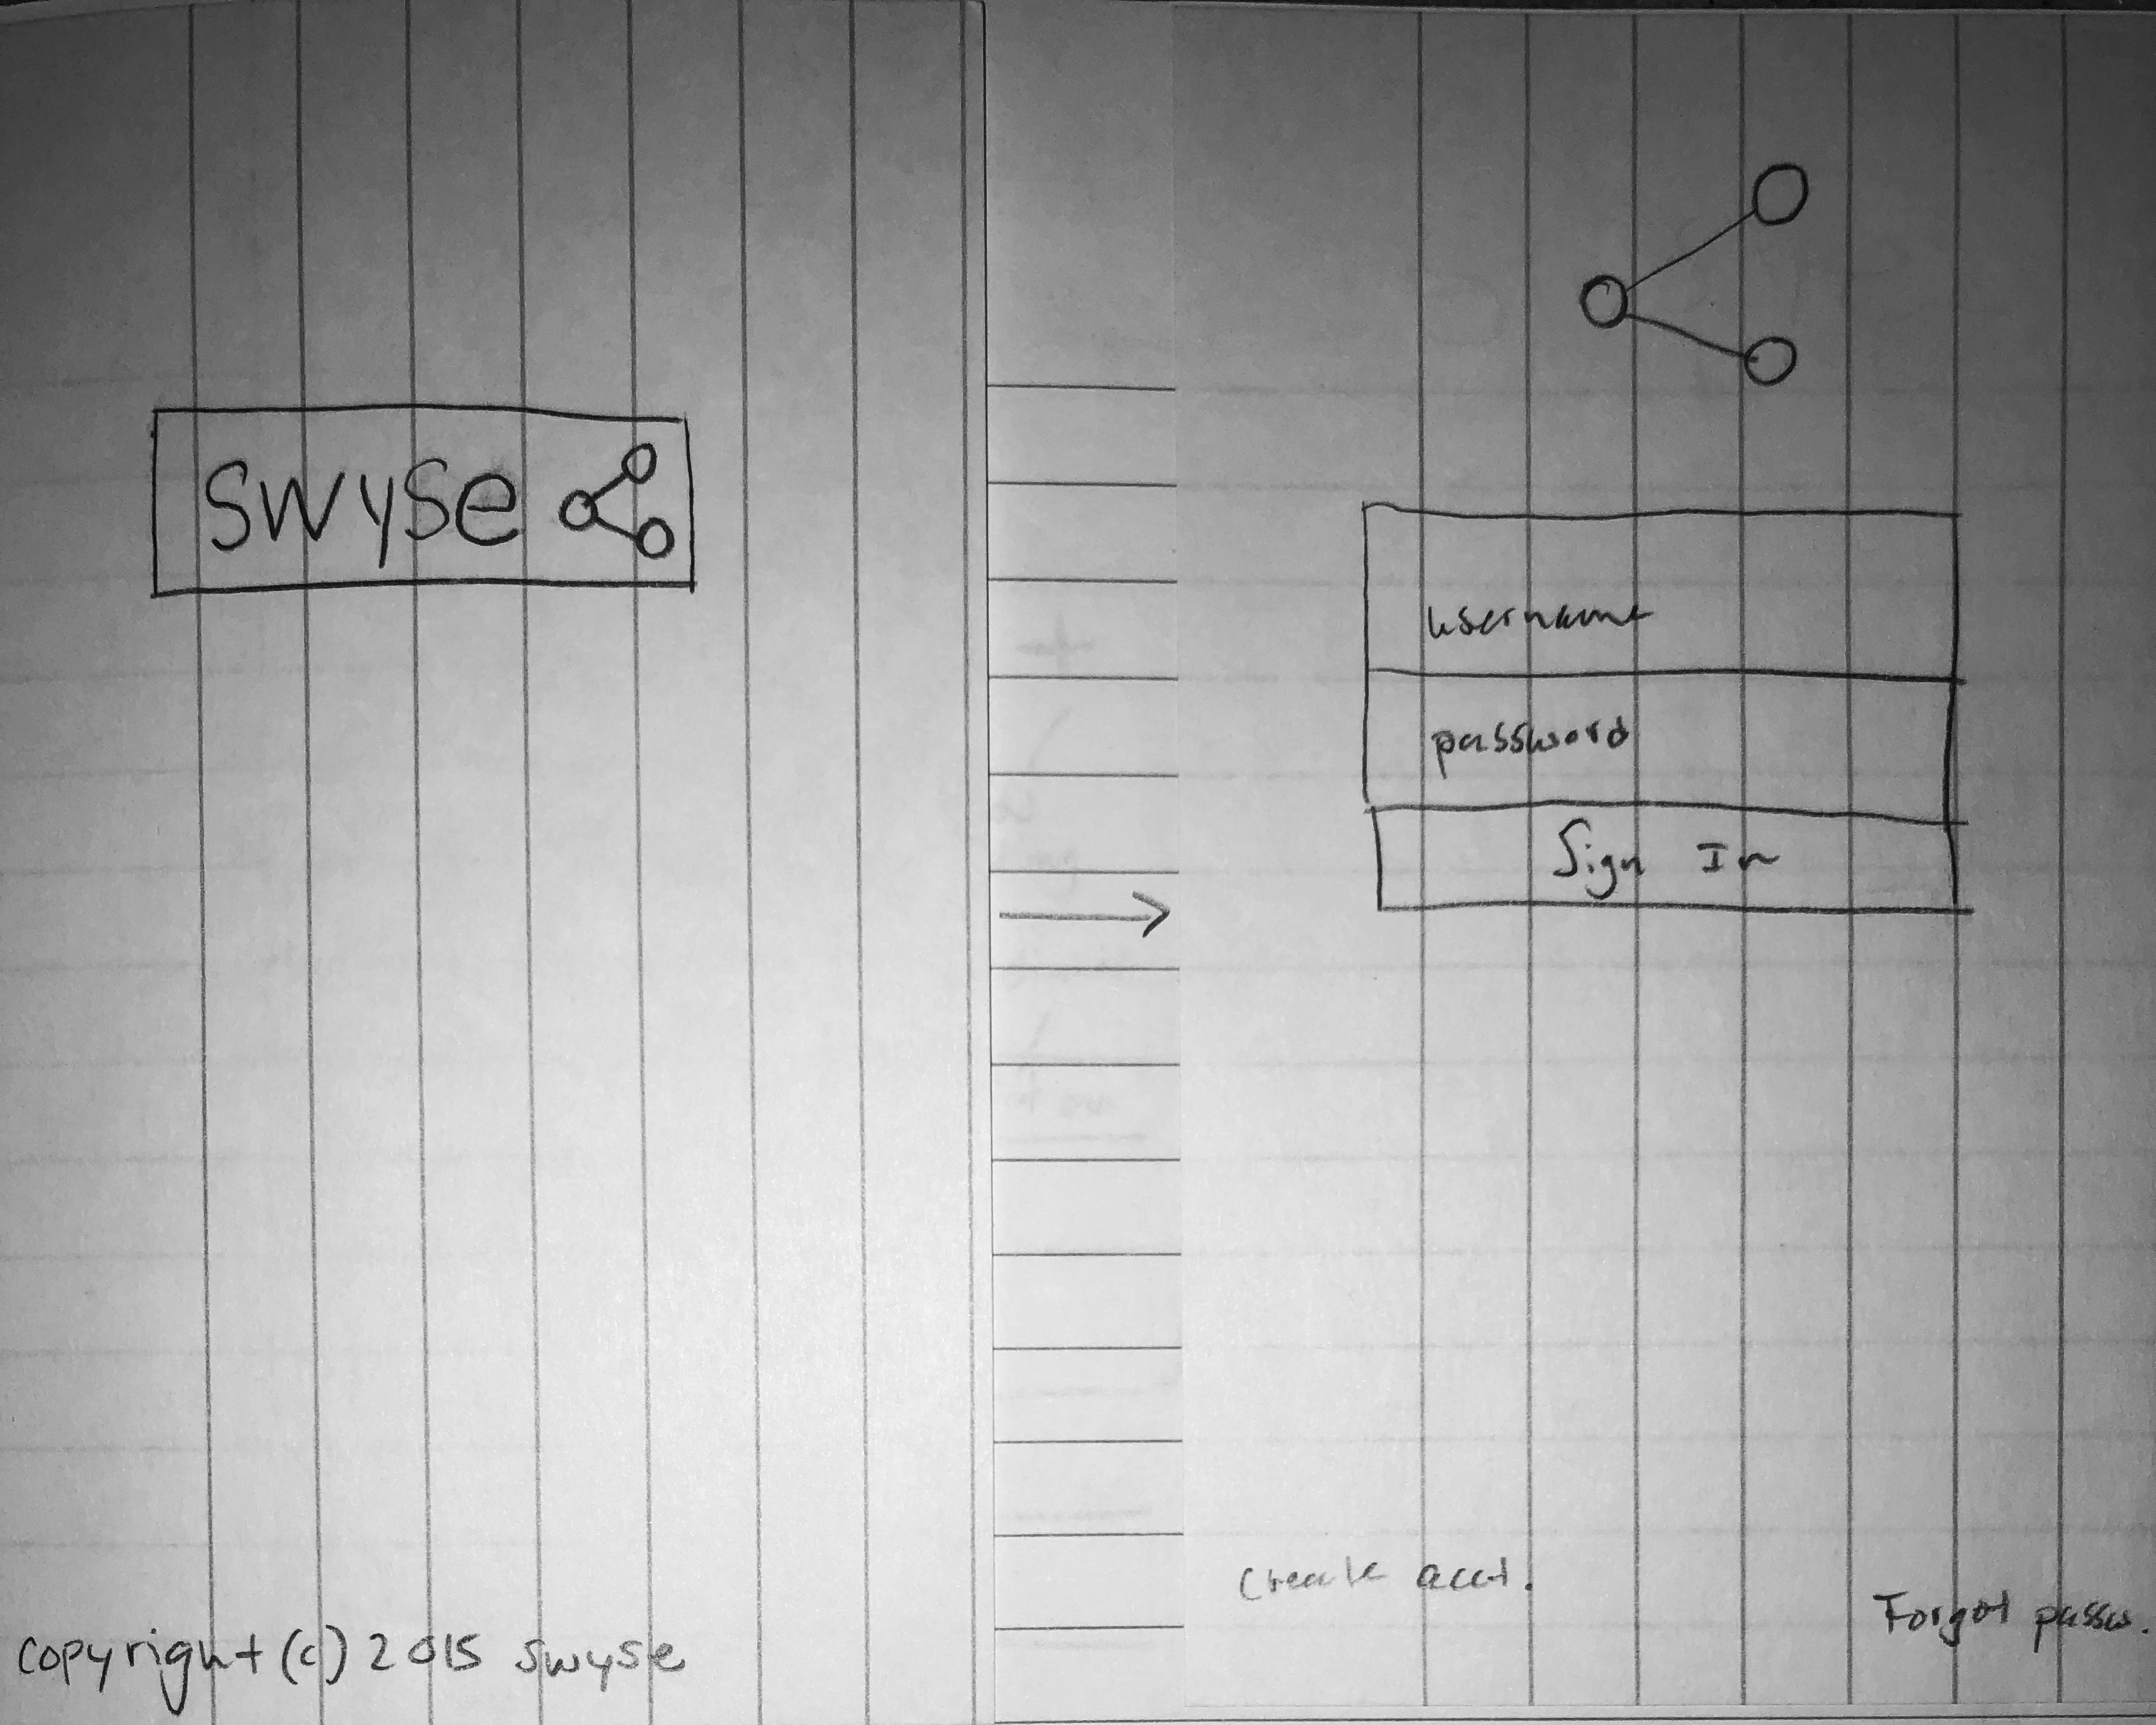 swyse
copyright (c) 2015 swyse
username
password
Sign In
Create acct.
Forgot passw.